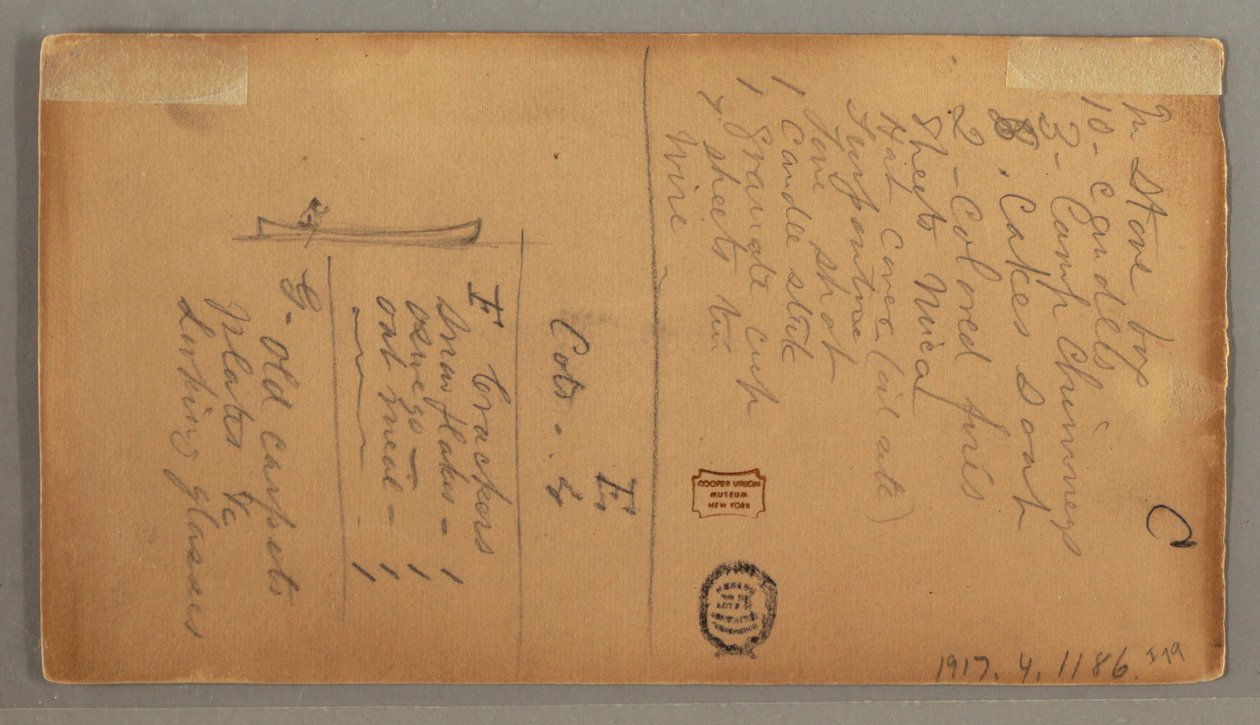 C
In Stove box
10 - Candels
3 - Lamp Chimneys
8. Cakes Soap
2 - Colored fires
Sheets Mica
Hat cover (oil
Turpentine
Fone shot
1 Candle stick
1 Granate cup
4 sheets tin
Wire
E.
Cots. - 2
F Crackers
Snowflakes - 1
oswego - 1
oat meal - 1
G - old carpets
Plates &c
Looking glasses
COOPER UNION
MUSEUM
NEW YORK
1917. 4. 1186.